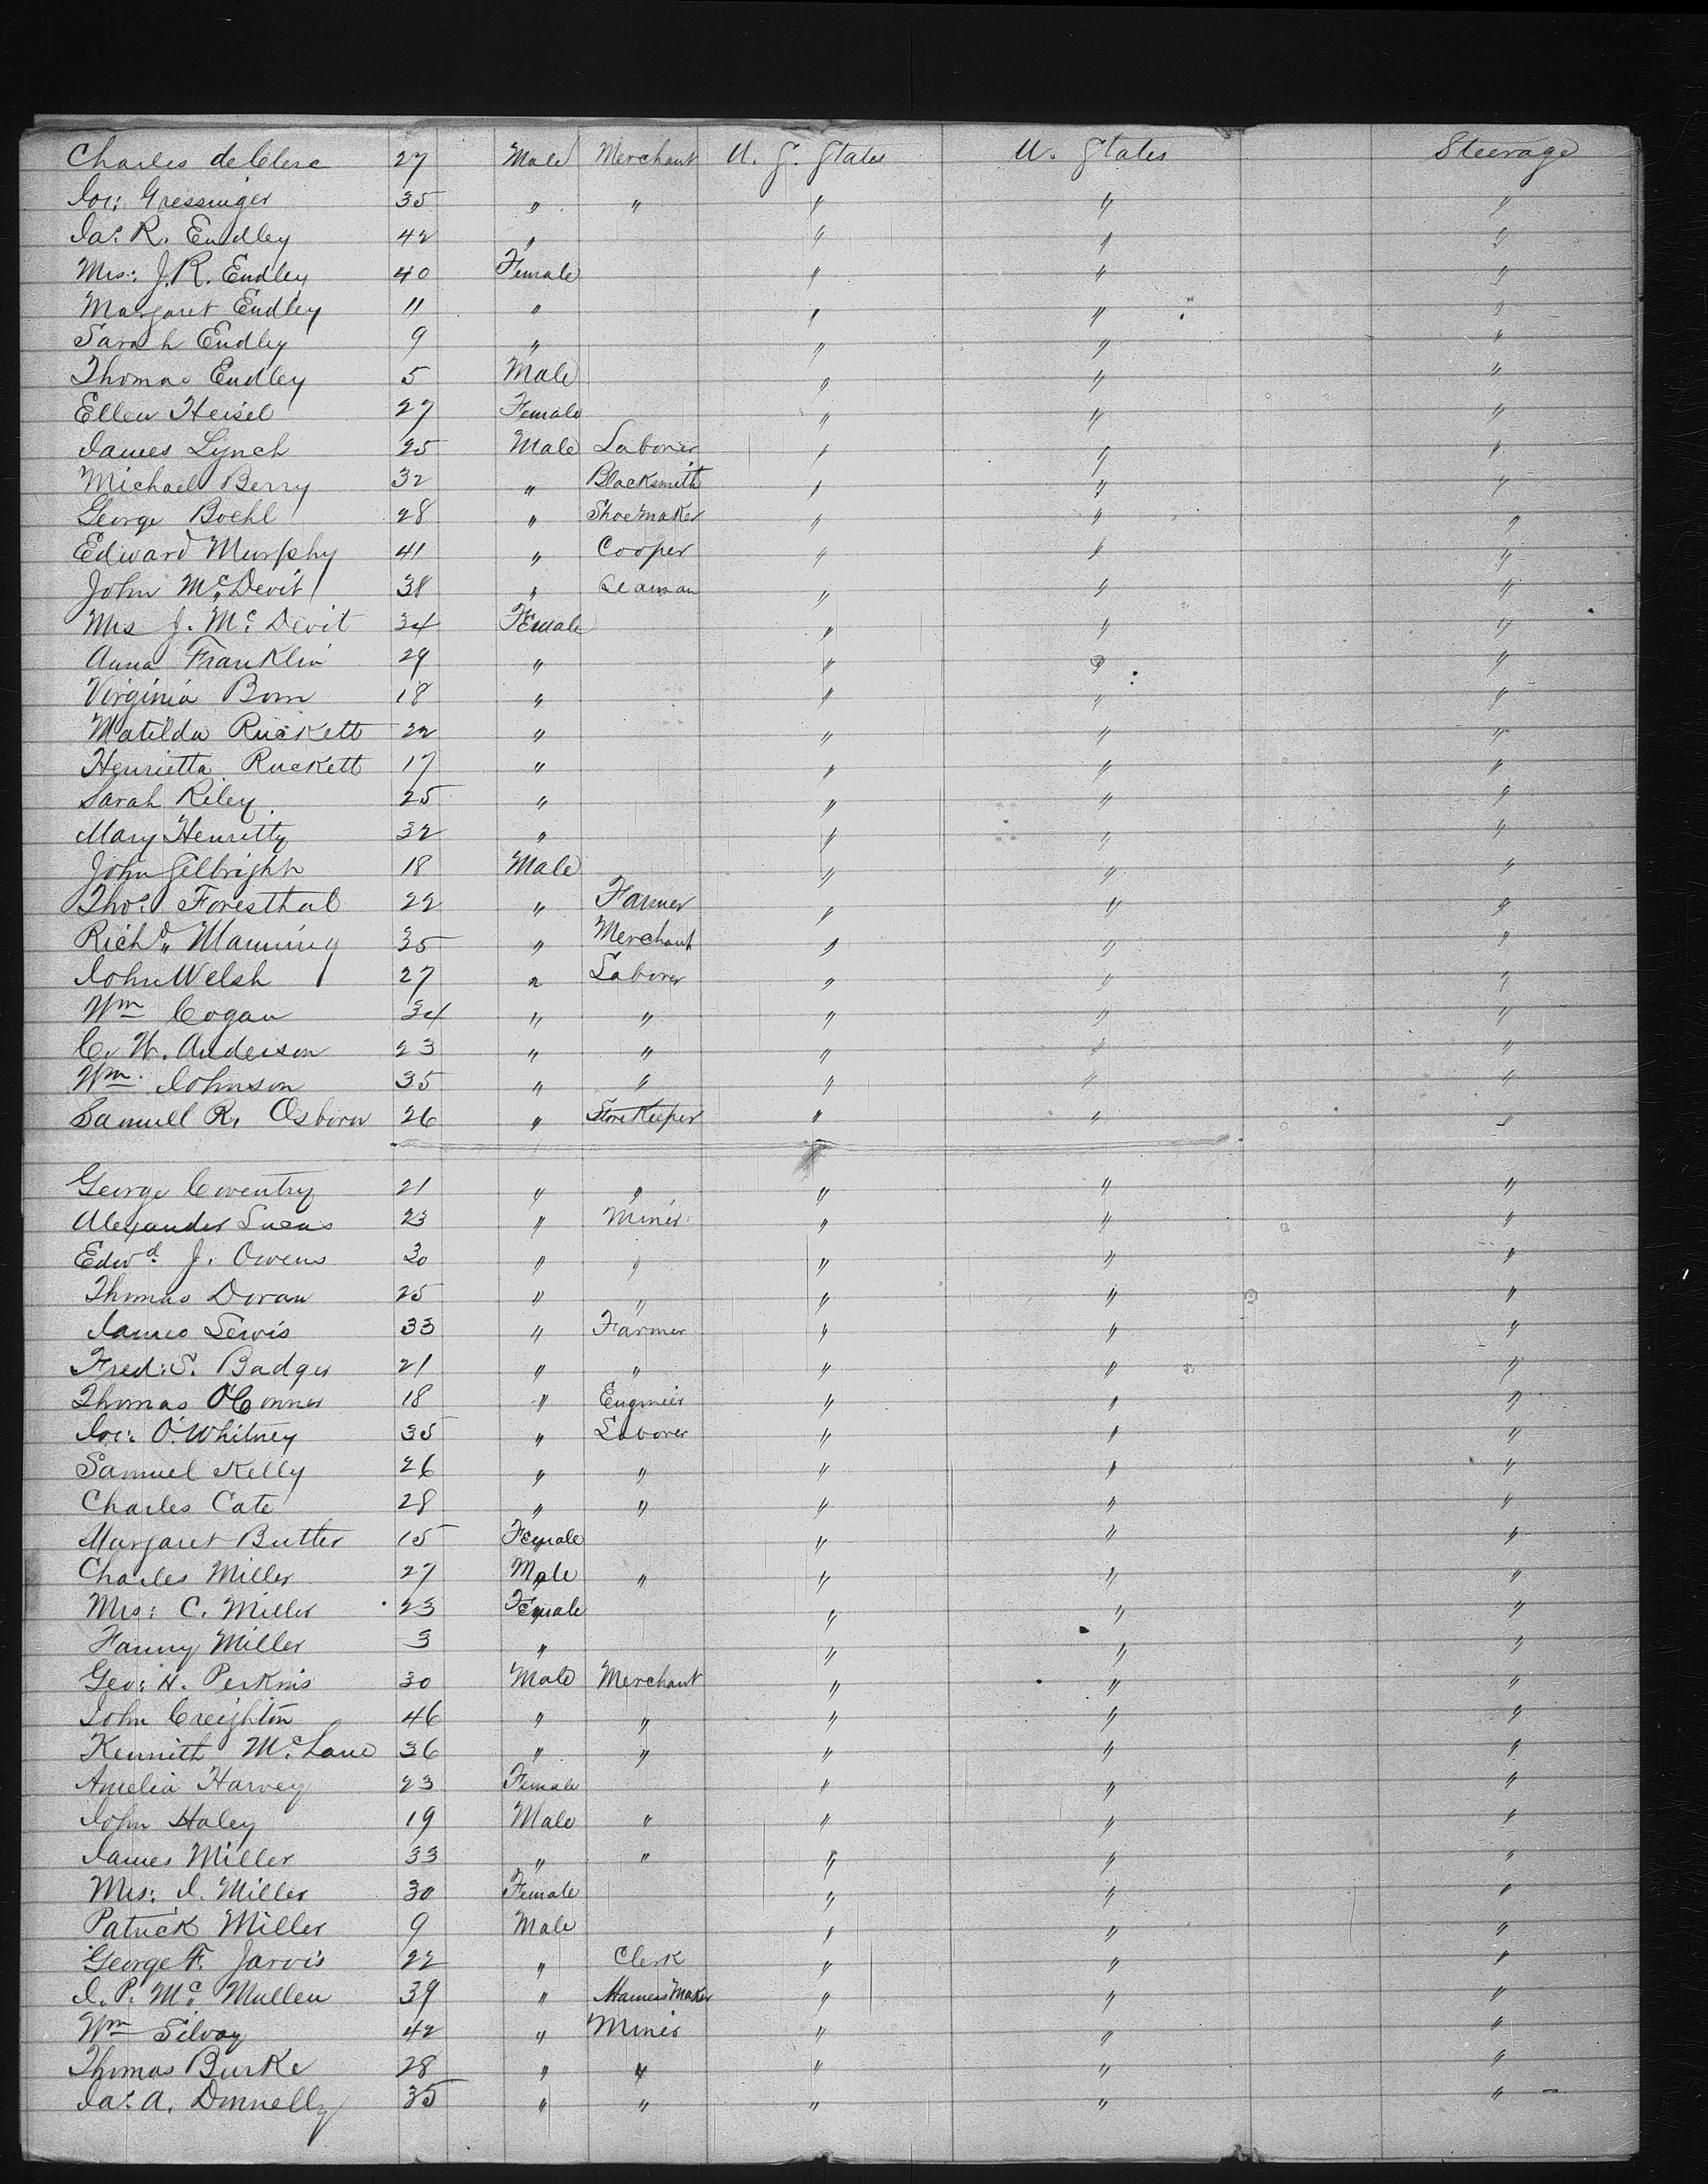 Charles de Clere 27 Male Merchant U. S. States U. States Steerage
Jos: Gressinger 35 " " " " "
Jas: R. Endley 42 " " " "
Mrs: J. R. Endley 40 Female " " "
Margaret Endley 11 " " " "
Sarah Endley 9 " " " "
Thomas Endley 5 Male " " "
Ellen Heisel 27 Female " " "
James Lynch 25 Male Laborer " " "
Michael Berry 32 " Blacksmith " " "
George Boehl 28 " Shoemaker " " "
Edward Murphy 41 " Cooper " " "
John McDevit 38 " Seaman " " "
Mrs J. Mc Devit 34 Female " " "
Anna Franklin 29 " " " "
Virginia Born 18 " " " "
Matilda Ruckett 22 " " " "
Henrietta Ruckett 17 " " " "
Sarah Riley 25 " " " "
Mary Henritty 32 " " " "
John Gilbright 18 Male " " "
Thos: Foresthal 22 " Farmer " " "
Richd. Manning 35 " Merchant " " "
John Welsh 27 " Laborer " " "
Wm Cogan 34 " " " " "
C. W. Anderson 23 " " " " "
Wm. Johnson 35 " " " " "
Samuell R. Osborn 26 " Store Keeper " " "
George Coventry 21 " " " " "
Alexander Lucas 23 " Miner " " "
Edwd. J. Owens 30 " " " " "
Thomas Doran 25 " " " " "
James Lewis 33 " Farmer " " "
Fred: S. Badger 21 " " " " "
Thomas O'Conner 18 " Engineer " " "
Jos: O. Whitney 35 " Laborer " " "
Samuel Kelly 26 " " " " "
Charles Cate 28 " " " " "
Margaret Butler 15 Female " " "
Charles Miller 27 Male " " " "
Mrs: C. Miller 23 Female " " "
Fanny Miller 3 " " " "
Geo: H. Perkins 30 Male Merchant " " "
John Creighton 46 " " " " "
Kennith McLane 36 " " " " "
Amelia Harvey 23 Female " " "
John Haley 19 Male " " " "
James Miller 33 " " " " "
Mrs: J. Miller 30 Female " " "
Patrick Miller 9 Male " " "
George F. Jarvis 22 " Clerk " " "
J. P. Mc Mullen 39 " Harness Maker " " "
Wm Silvay 42 " Miner " " "
Thomas Burke 28 " " " " "
Jas: A. Donnelly 35 " " " " "